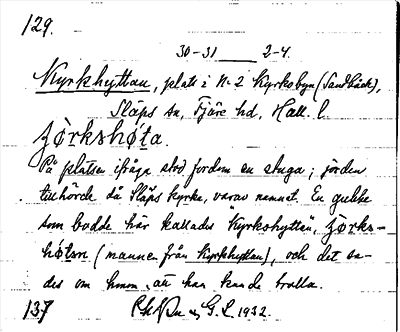 129.
30-31 ___ 2-4.
Kyrkhyttan, plats i N:o 2 Kyrkobyn (Sandbäck),
Släps sn, Fjäre hd, Hall. l.
På platsen ifråga stod fordom en stuga; jorden
tillhörde då Släps kyrka, varav namnet. En gubbe
som bodde här kallades "Kyrkshytten",
(mannen från Kyrkhyttan), och det sa-
des om honom, att han kunde trolla.
137 G. L. 1932.